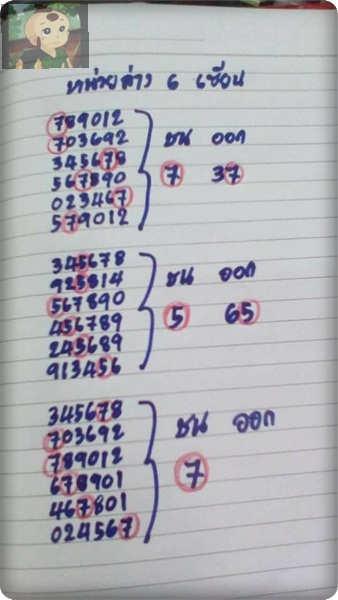 หน่วยล่าง 6 เซียน
789012
703692
345678
567890
023467
579012
ชน ออก
7 37
345678
925814
567890
456789
245689
913456
ชน ออก
5 65
345678
703692
789012
678901
467801
024567
ชน ออก
7